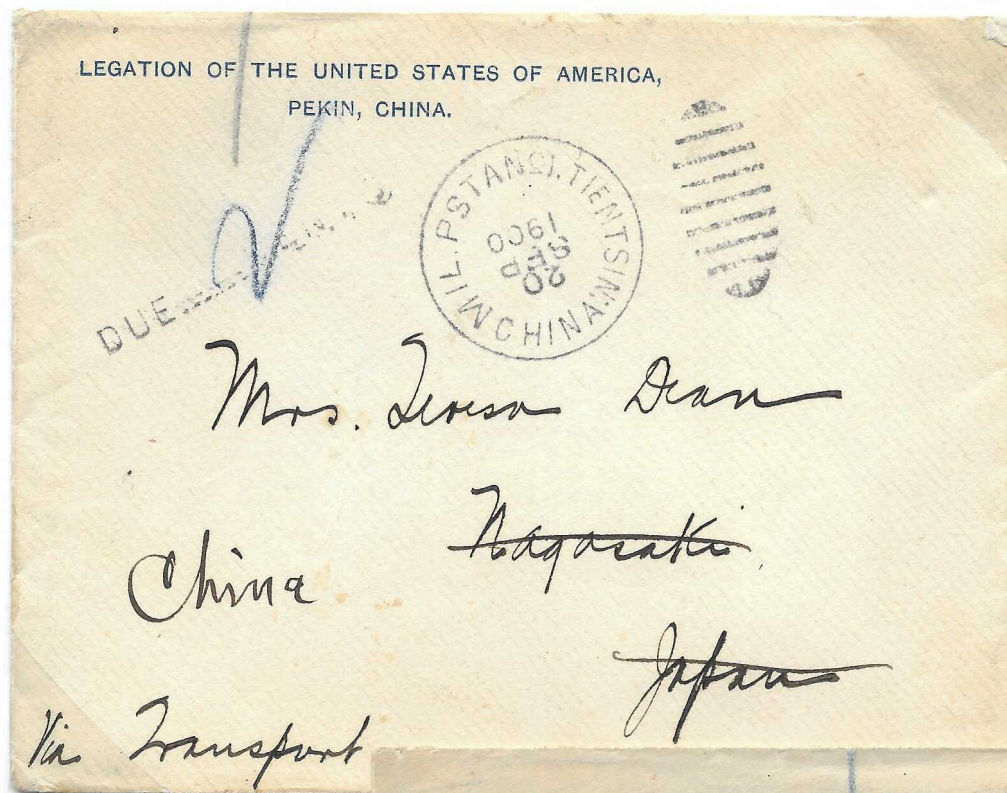 LEGATION OF THE UNITED STATES OF AMERICA,
PEKIN, CHINA.
MIL. P. STA. NO. 1. TIENTSIN
CHINA.
20
SEP
1900
DUE
Mrs. Teresa Dean
Nagasaki
China
Japan
Via Transport